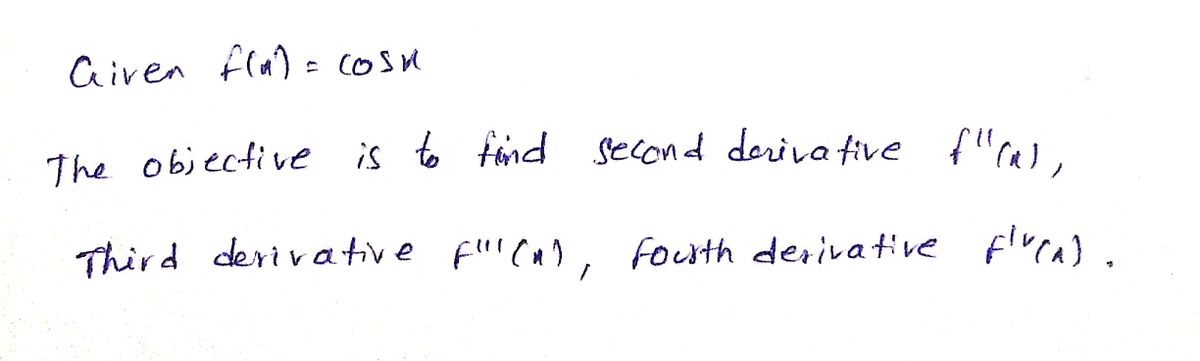 Given f(x) = cosx
The objective is to find second derivative f''(x),
Third derivative f'''(x), fourth derivative f^iv(x).